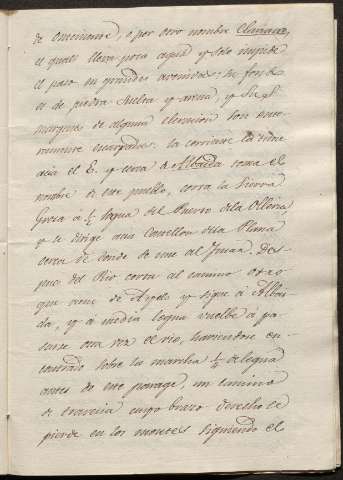 de Onteniente, o por otro nombre Clariano,
el qual lleva poca agua y solo impide
el paso en grandes avenidas: su fondo
es de piedra suelta y arena, y sus
margenes de alguna elevacion son ente-
ramente escarpadas: la corriente la tiene
acia el E. y cerca de Albaida toma el
nombre de este pueblo, corta la Sierra
Grosa a ½ legua del Puerto de la Olleria,
y se dirige acia Castellon de la Plana
cerca de donde se une al Jucar. Des-
pues del Rio corta al camino otro
que viene de Ayelo y sigue á Albai-
da, y á media legua vuelbe á pa-
sarse otra vez el rio, haviendose en-
contrado sobre la marcha ¼ de legua
antes de este parage, un camino
de travesia cuyo brazo derecho se
pierde en los montes siguiendo el